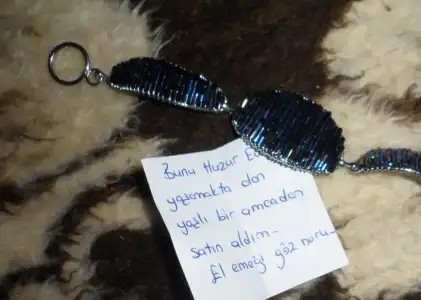 Bunu Huzur E
yaşamakta olan
yaşlı bir amcadan
satın aldım..
El emeği göz nuru..